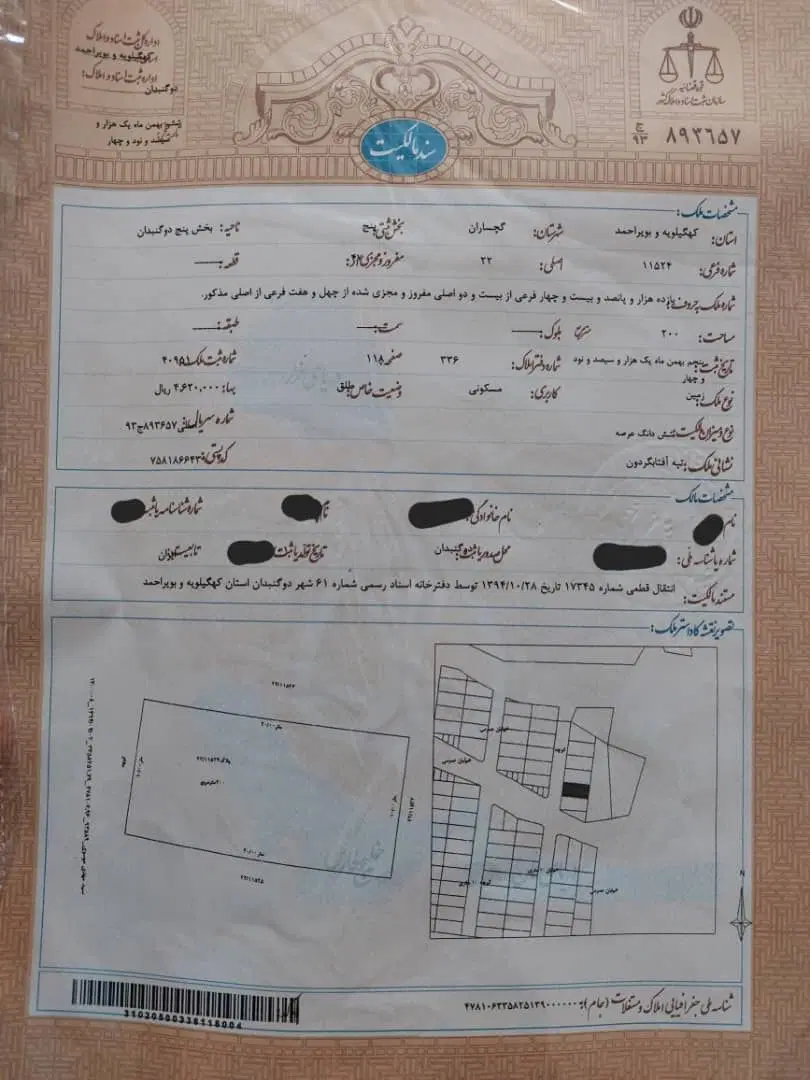 اداره کل ثبت اسناد و املاک
استان: کهگیلویه و بویراحمد
اداره ثبت اسناد و املاک:
دوگنبدان
ششم بهمن ماه یک هزار و
سیصد و نود و چهار
قوه قضائیه
سازمان ثبت اسناد و املاک کشور
ج ۹۳ ۸۹۳۶۵۷
سند مالکیت
مشخصات ملک:
استان: کهگیلویه و بویراحمد شهرستان: گچساران بخش ثبتی: پنج ناحیه: بخش پنج دوگنبدان
شماره فرعی: ۱۱۵۲۴ اصلی: ۲۲ مفروز و مجزی از: ۴۷ قطعه:
شماره ملک به حروف: یازده هزار و پانصد و بیست و چهار فرعی از بیست و دو اصلی مفروز و مجزی شده از چهل و هفت فرعی از اصلی مذکور.
مساحت: ۲۰۰ متر مربع بلوک: سمت: طبقه:
تاریخ ثبت: پنجم بهمن ماه یک هزار و سیصد و نود و چهار شماره دفتر املاک: ۳۳۶ صفحه: ۱۱۸ شماره ثبت ملک: ۴۰۹۵۱
نوع ملک: زمین کاربری: مسکونی وضعیت خاص: طلق بهاء: ۴,۶۲۰,۰۰۰ ریال
نوع و میزان مالکیت: شش دانگ عرصه شماره سریال: ۸۹۳۶۵۷ج۹۳
نشانی ملک: تپه آفتابگردون کد پستی: ۷۵۸۱۸۶۶۴۳
مشخصات مالک
نام: نام خانوادگی: نام شماره شناسنامه یا ثبت:
شماره یا شناسه ملی: محل صدور یا ثبت: دوگنبدان تاریخ تولد یا ثبت: تابعیت: ایران
مستند مالکیت: انتقال قطعی شماره ۱۷۳۴۵ تاریخ ۱۳۹۴/۱۰/۲۸ توسط دفترخانه اسناد رسمی شماره ۶۱ شهر دوگنبدان استان کهگیلویه و بویراحمد
تصویر نقشه کاداستر ملک:
۲۲/۱۱۵۲۳
۲۰/۰۰ متر
پلاک ۲۲/۱۱۵۲۴
۲۰۰ مترمربع
کوچه
۲۰/۰۰ متر
۲۲/۱۱۵۲۵
خیابان عمومی
کوچه
خیابان عمومی
خیابان عمومی
N
شناسه ملی جغرافیایی املاک و مستغلات (جام): ۴۷۸۱۰۶۳۳۵۸۲۵۱۳۹۰۰۰۰۰۰
31020500336118004